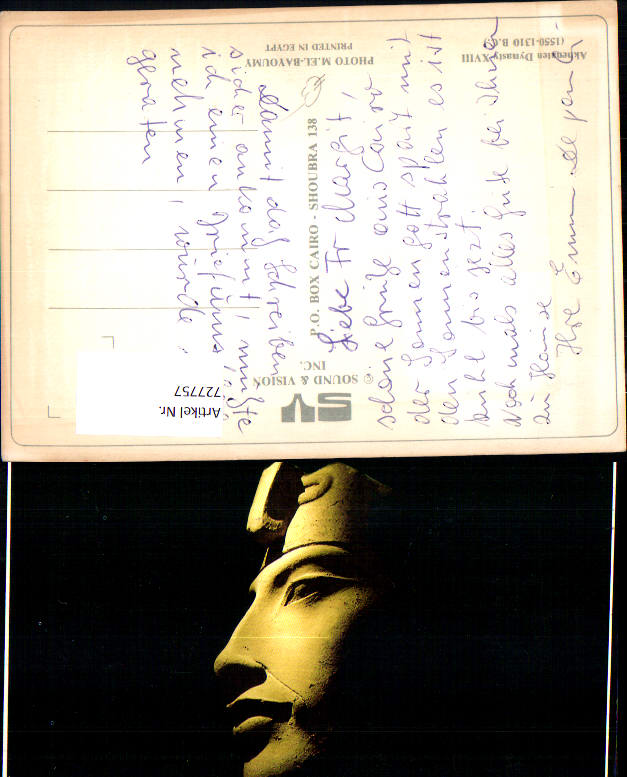 Akhenaten Dynasty XVIII
(1550-1310 B.C.)
PHOTO M.EL-BAYOUMY
PRINTED IN EGYPT
P.O. BOX CAIRO - SHOUBRA 138
© SOUND & VISION
INC.
SV
Artikel Nr.
727757
Liebe Fr Margit,
schöne Grüße aus Cairo
der Sonnengott spart mit
den Sonnenstrahlen es ist
kühl bis jezt.
Nochmals alles Gute bei Ihnen
zu Hause
Ihre
damit das Schreiben
sicher ankommt, mußte
ich einen
nehmen, wurde
geraten